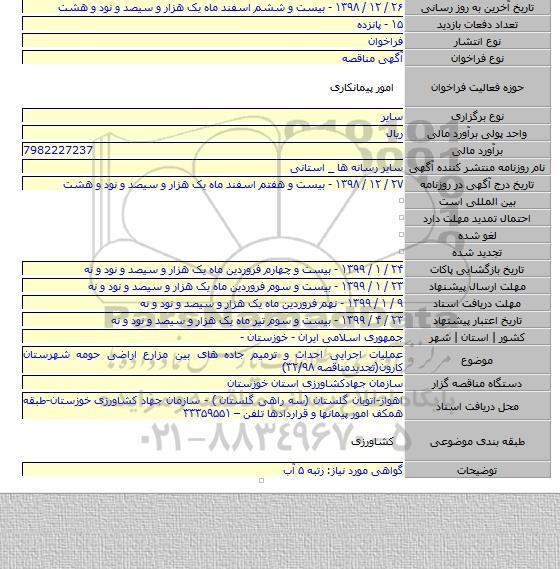 تاریخ آخرین به روز رسانی ۲۶ / ۱۲ / ۱۳۹۸ - بیست و ششم اسفند ماه یک هزار و سیصد و نود و هشت
تعداد دفعات بازدید ۱۵ - پانزده
نوع انتشار فراخوان
نوع فراخوان آگهی مناقصه
حوزه فعالیت فراخوان امور پیمانکاری
نوع برگزاری سایر
واحد پولی برآورد مالی ریال
برآورد مالی 7982227237
نام روزنامه منتشر کننده آگهی سایر رسانه ها _ استانی
تاریخ درج آگهی در روزنامه ۲۷ / ۱۲ / ۱۳۹۸ - بیست و هفتم اسفند ماه یک هزار و سیصد و نود و هشت
بین المللی است
احتمال تمدید مهلت دارد
لغو شده
تجدید شده
تاریخ بازگشایی پاکات ۲۴ / ۱ / ۱۳۹۹ - بیست و چهارم فروردین ماه یک هزار و سیصد و نود و نه
مهلت ارسال پیشنهاد ۲۳ / ۱ / ۱۳۹۹ - بیست و سوم فروردین ماه یک هزار و سیصد و نود و نه
مهلت دریافت اسناد ۹ / ۱ / ۱۳۹۹ - نهم فروردین ماه یک هزار و سیصد و نود و نه
تاریخ اعتبار پیشنهاد ۲۳ / ۴ / ۱۳۹۹ - بیست و سوم تیر ماه یک هزار و سیصد و نود و نه
کشور | استان | شهر جمهوری اسلامی ایران - خوزستان -
موضوع عملیات اجرایی احداث و ترمیم جاده های بین مزارع اراضی حومه شهرستان
کارون(تجدیدمناقصه ۳۲/۹۸)
دستگاه مناقصه گزار سازمان جهادکشاورزی استان خوزستان
محل دریافت اسناد اهواز-اتوبان گلستان (سه راهی گلستان ) - سازمان جهاد کشاورزی خوزستان-طبقه
همکف امور پیمانها و قراردادها تلفن – ۳۳۳۵۹۵۵۱
طبقه بندی موضوعی کشاورزی
توضیحات گواهی مورد نیاز: رتبه ۵ آب
ParsNamadData
۰۲۱-۸۸۳۴۹۶۷۰-۵